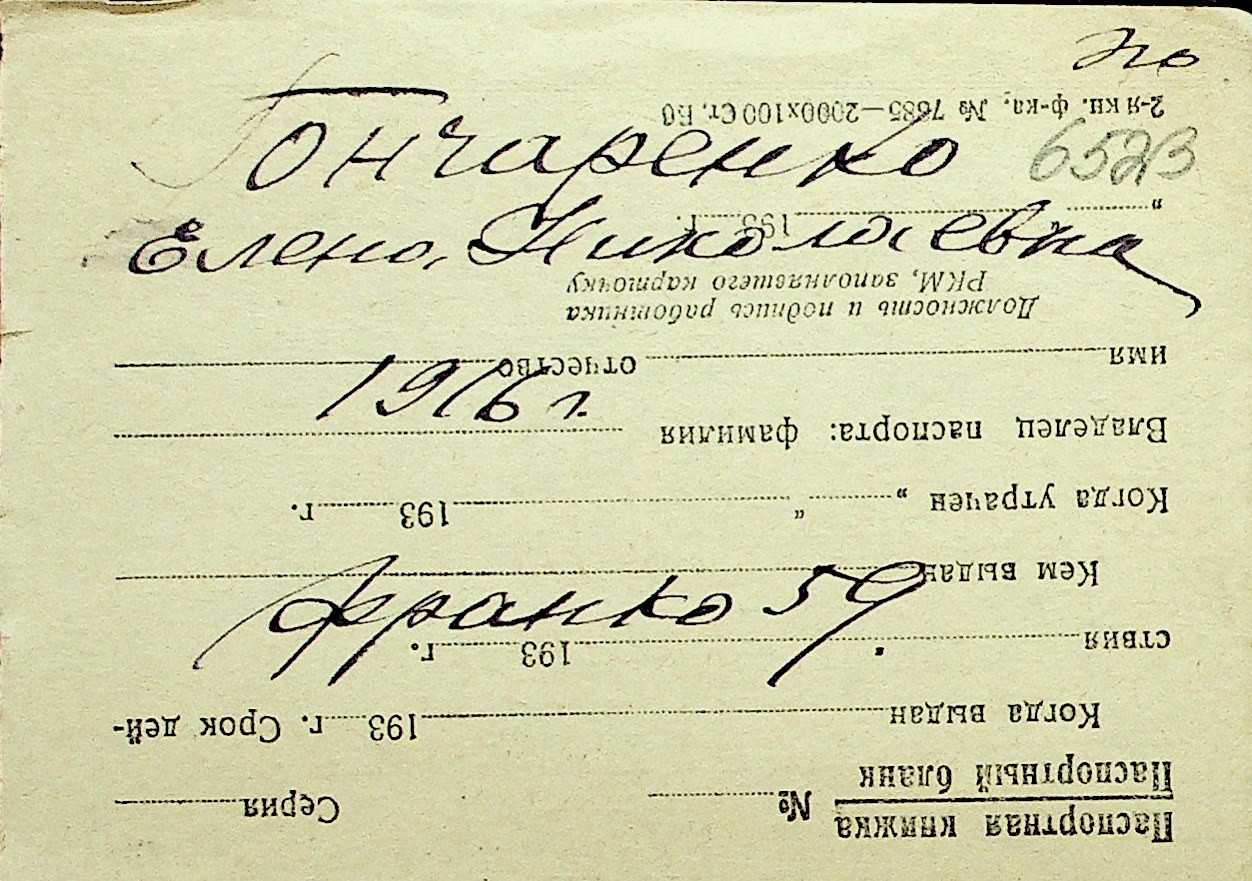 по
Гончаренко
6523
Елена Николаевна
1916 г.
Франко 59.
Паспортная книжка
Паспортный бланк № Серия
Когда выдан 193 г. Срок дей-
ствия 193 г.
Кем выдан
Когда утрачен „ “ 193 г.
Владелец паспорта: фамилия
имя отчество
Должность и подпись работника
РКМ, заполнявшего карточку
„ 193 г.
2-я кн. ф-ка. № 7685—2000х100 Ст. Б0